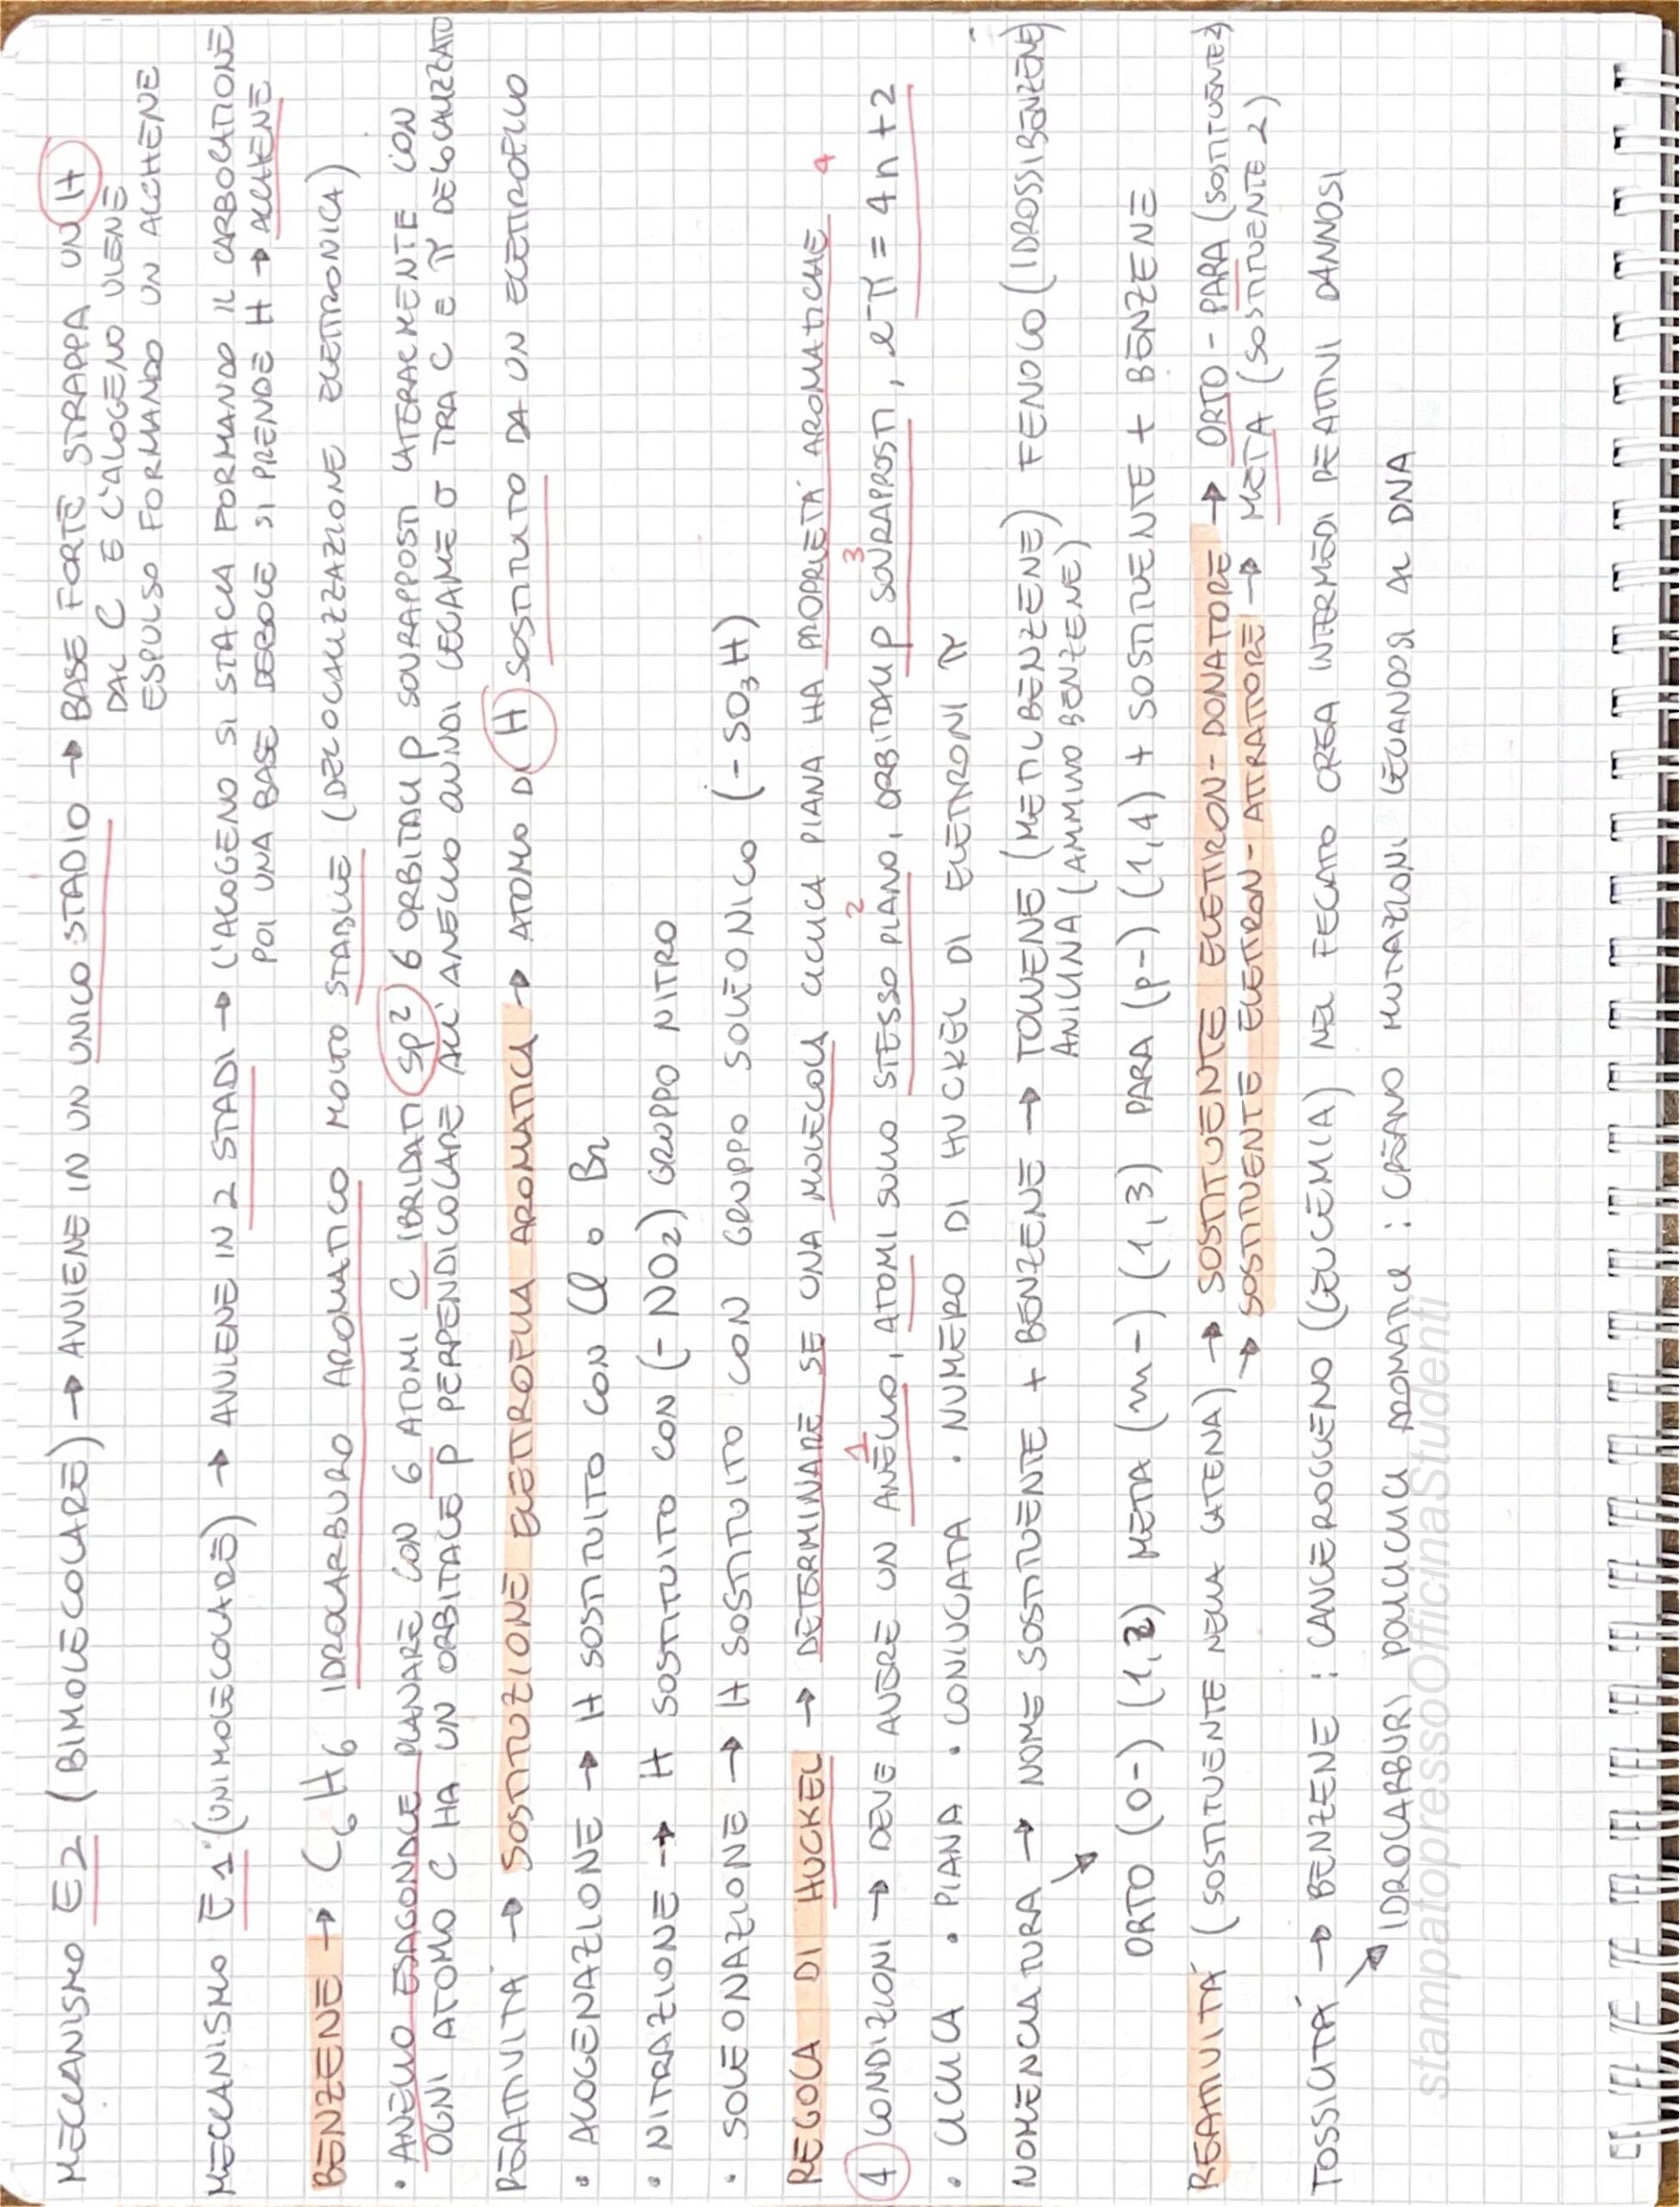 MECCANISMO E2 (BIMOLECOLARE) → AVVIENE IN UN UNICO STADIO → BASE FORTE STRAPPA UN H
DAL C E L'ALOGENO VIENE
ESPULSO FORMANDO UN ALCHENE
MECCANISMO E1 (UNIMOLECOLARE) → AVVIENE IN 2 STADI → L'ALOGENO SI STACCA FORMANDO IL CARBOCATIONE
POI UNA BASE DEBOLE SI PRENDE H → ALCHENE
BENZENE → C6H6 IDROCARBURO AROMATICO MOLTO STABILE (DELOCALIZZAZIONE ELETTRONICA)
• ANELLO ESAGONALE PLANARE CON 6 ATOMI C IBRIDATI sp2 6 ORBITALI p SOVRAPPOSTI LATERALMENTE CON
OGNI ATOMO C HA UN ORBITALE p PERPENDICOLARE ALL'ANELLO QUINDI LEGAME σ TRA C E π DELOCALIZZATO
REATTIVITÀ → SOSTITUZIONE ELETTROFILA AROMATICA → ATOMO DI H SOSTITUITO DA UN ELETTROFILO
• ALOGENAZIONE → H SOSTITUITO CON Cl o Br
• NITRAZIONE → H SOSTITUITO CON (-NO2) GRUPPO NITRO
• SOLFONAZIONE → H SOSTITUITO CON GRUPPO SOLFONICO (-SO3H)
REGOLA DI HUCKEL → DETERMINARE SE UNA MOLECOLA CICLICA PIANA HA PROPRIETÀ AROMATICHE
4 CONDIZIONI → DEVE AVERE UN ANELLO 1, ATOMI SULLO STESSO PIANO 2, ORBITALI p SOVRAPPOSTI 3, e⁻π = 4n+2 4
• CICLICA • PIANA • CONIUGATA • NUMERO DI HUCKEL DI ELETTRONI π
NOMENCLATURA → NOME SOSTITUENTE + BENZENE → TOLUENE (METILBENZENE) FENOLO (IDROSSIBENZENE)
ANILINA (AMMINO BENZENE)
→ ORTO (o-) (1,2) META (m-) (1,3) PARA (p-) (1,4) + SOSTITUENTE + BENZENE
REATTIVITÀ (SOSTITUENTE NELLA CATENA) → SOSTITUENTE ELETTRON-DONATORE → ORTO-PARA (SOSTITUENTE 2)
→ SOSTITUENTE ELETTRON-ATTRATTORE → META (SOSTITUENTE 2)
TOSSICITÀ → BENZENE : CANCEROGGENO (LEUCEMIA) NEL FEGATO CREA INTERMEDI REATTIVI DANNOSI
→ IDROCARBURI POLICICLICI AROMATICI : CREANO MUTAZIONI LEGANDOSI AL DNA
stampatopressoOfficinaStudenti